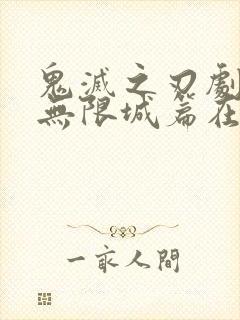 鬼滅之刃劇
無限城篇在
一家人間